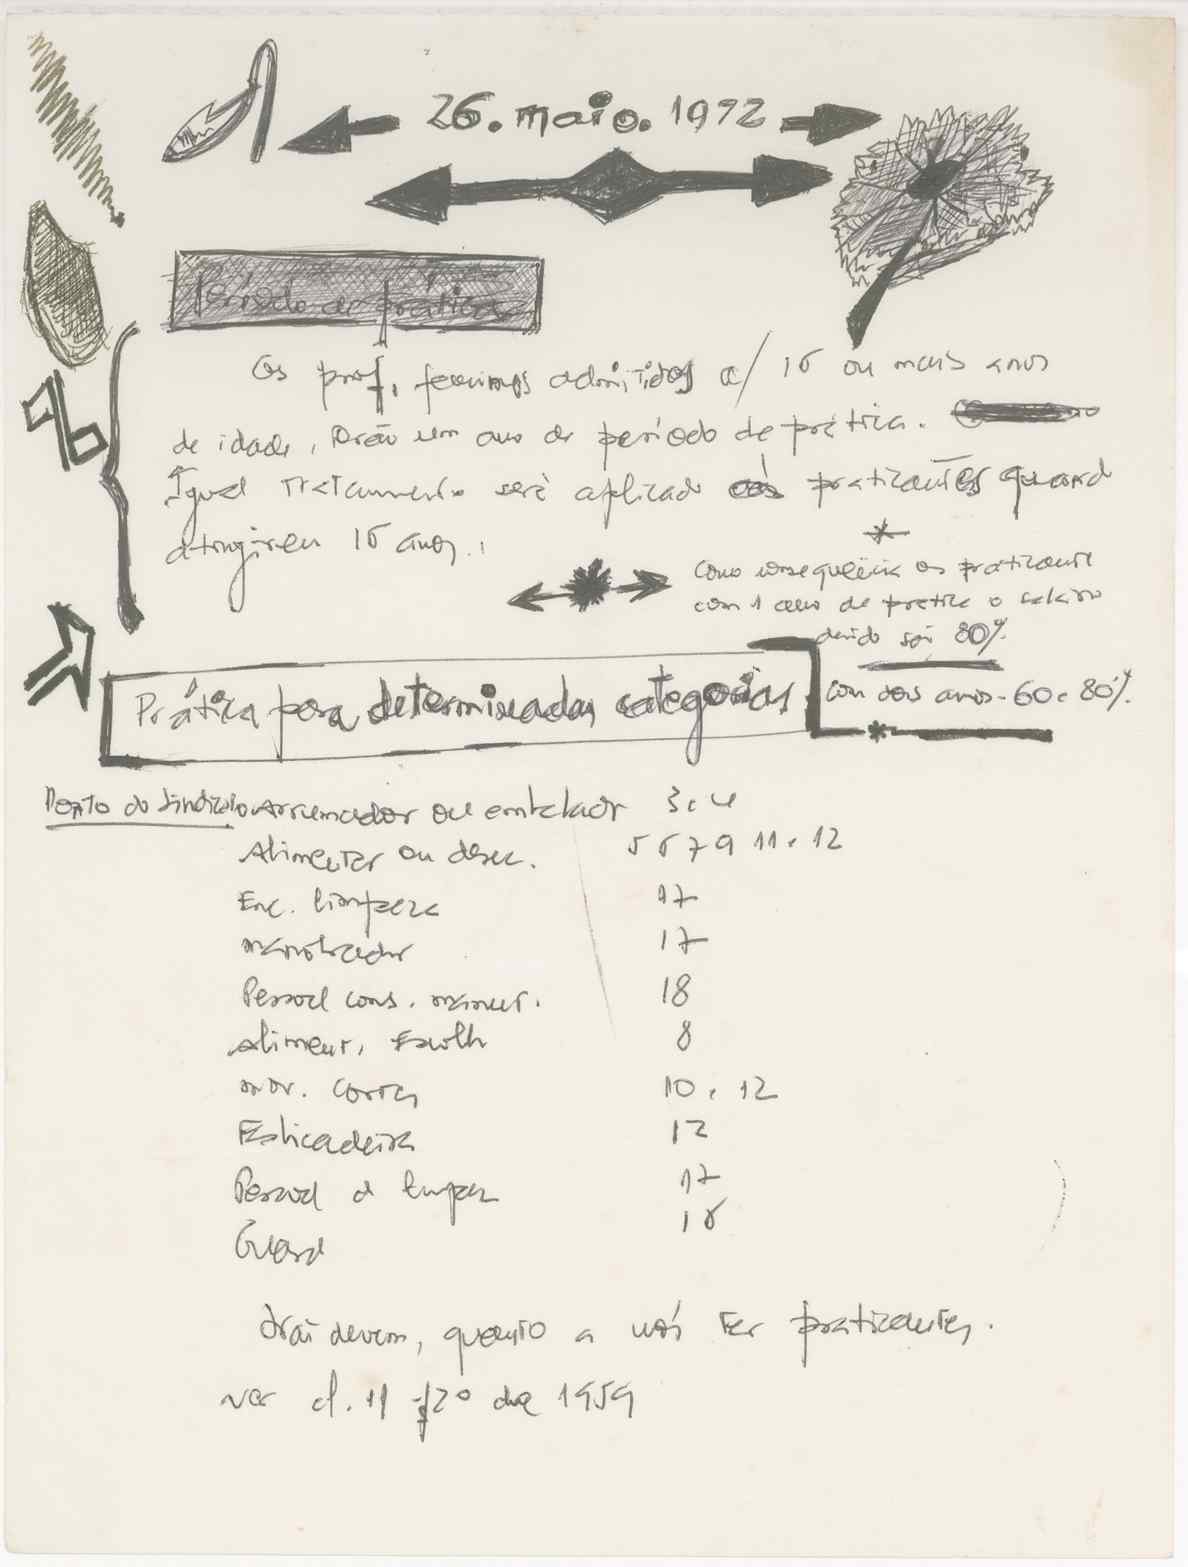 26. maio. 1972
Período de prática
Os prof. admitidos c/ 16 ou mais anos
de idade, terão um ano de período de prática.
Igual tratamento será aplicado praticantes quando
atingirem 16 anos.
*
Como consequência os praticante
com 1 ano de pratica o salário
devido será 80%
Prática para determinadas categorias
com dois anos - 60 e 80%.
*
Ponto do Sindicato Arrumador ou embalador 3 e 4
Alimentar ou desc. 5 6 7 9 11 e 12
Enc. limpeza 17
Manobrador 17
Pessoal cons. manut. 18
Alimen. Escolh 8
10 e 12
Esticadeira 12
Pessoal d limpez 17
Guard 16
Não devem, quanto a nós ter praticantes.
ver cl. 11 de 1959